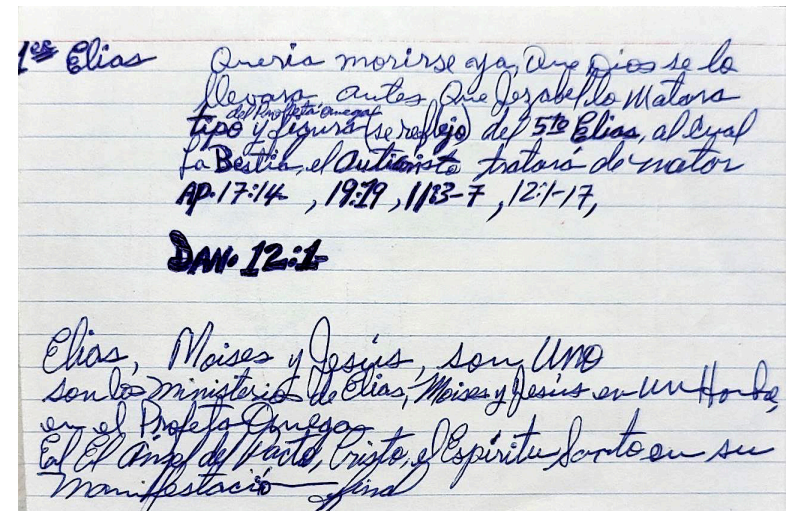 1er Elias Queria morirse ya, Que Dios se lo
llevara antes Que Jezabel lo Matara
del Profeta Omega
tipo y figura (se reflejo) del 5to Elias, al cual
La Bestia, el anticristo tratará de matar
AP. 17:14 , 19:19 , 11:3-7 , 12:1-17,
DAN. 12:1
Elias, Moises y Jesús, son UNO
son los ministerios de Elias, Moises y Jesús en un Hombre,
en el Profeta Omega
Es El Ángel del Pacto, Cristo, el Espíritu Santo en su
Manifestació final